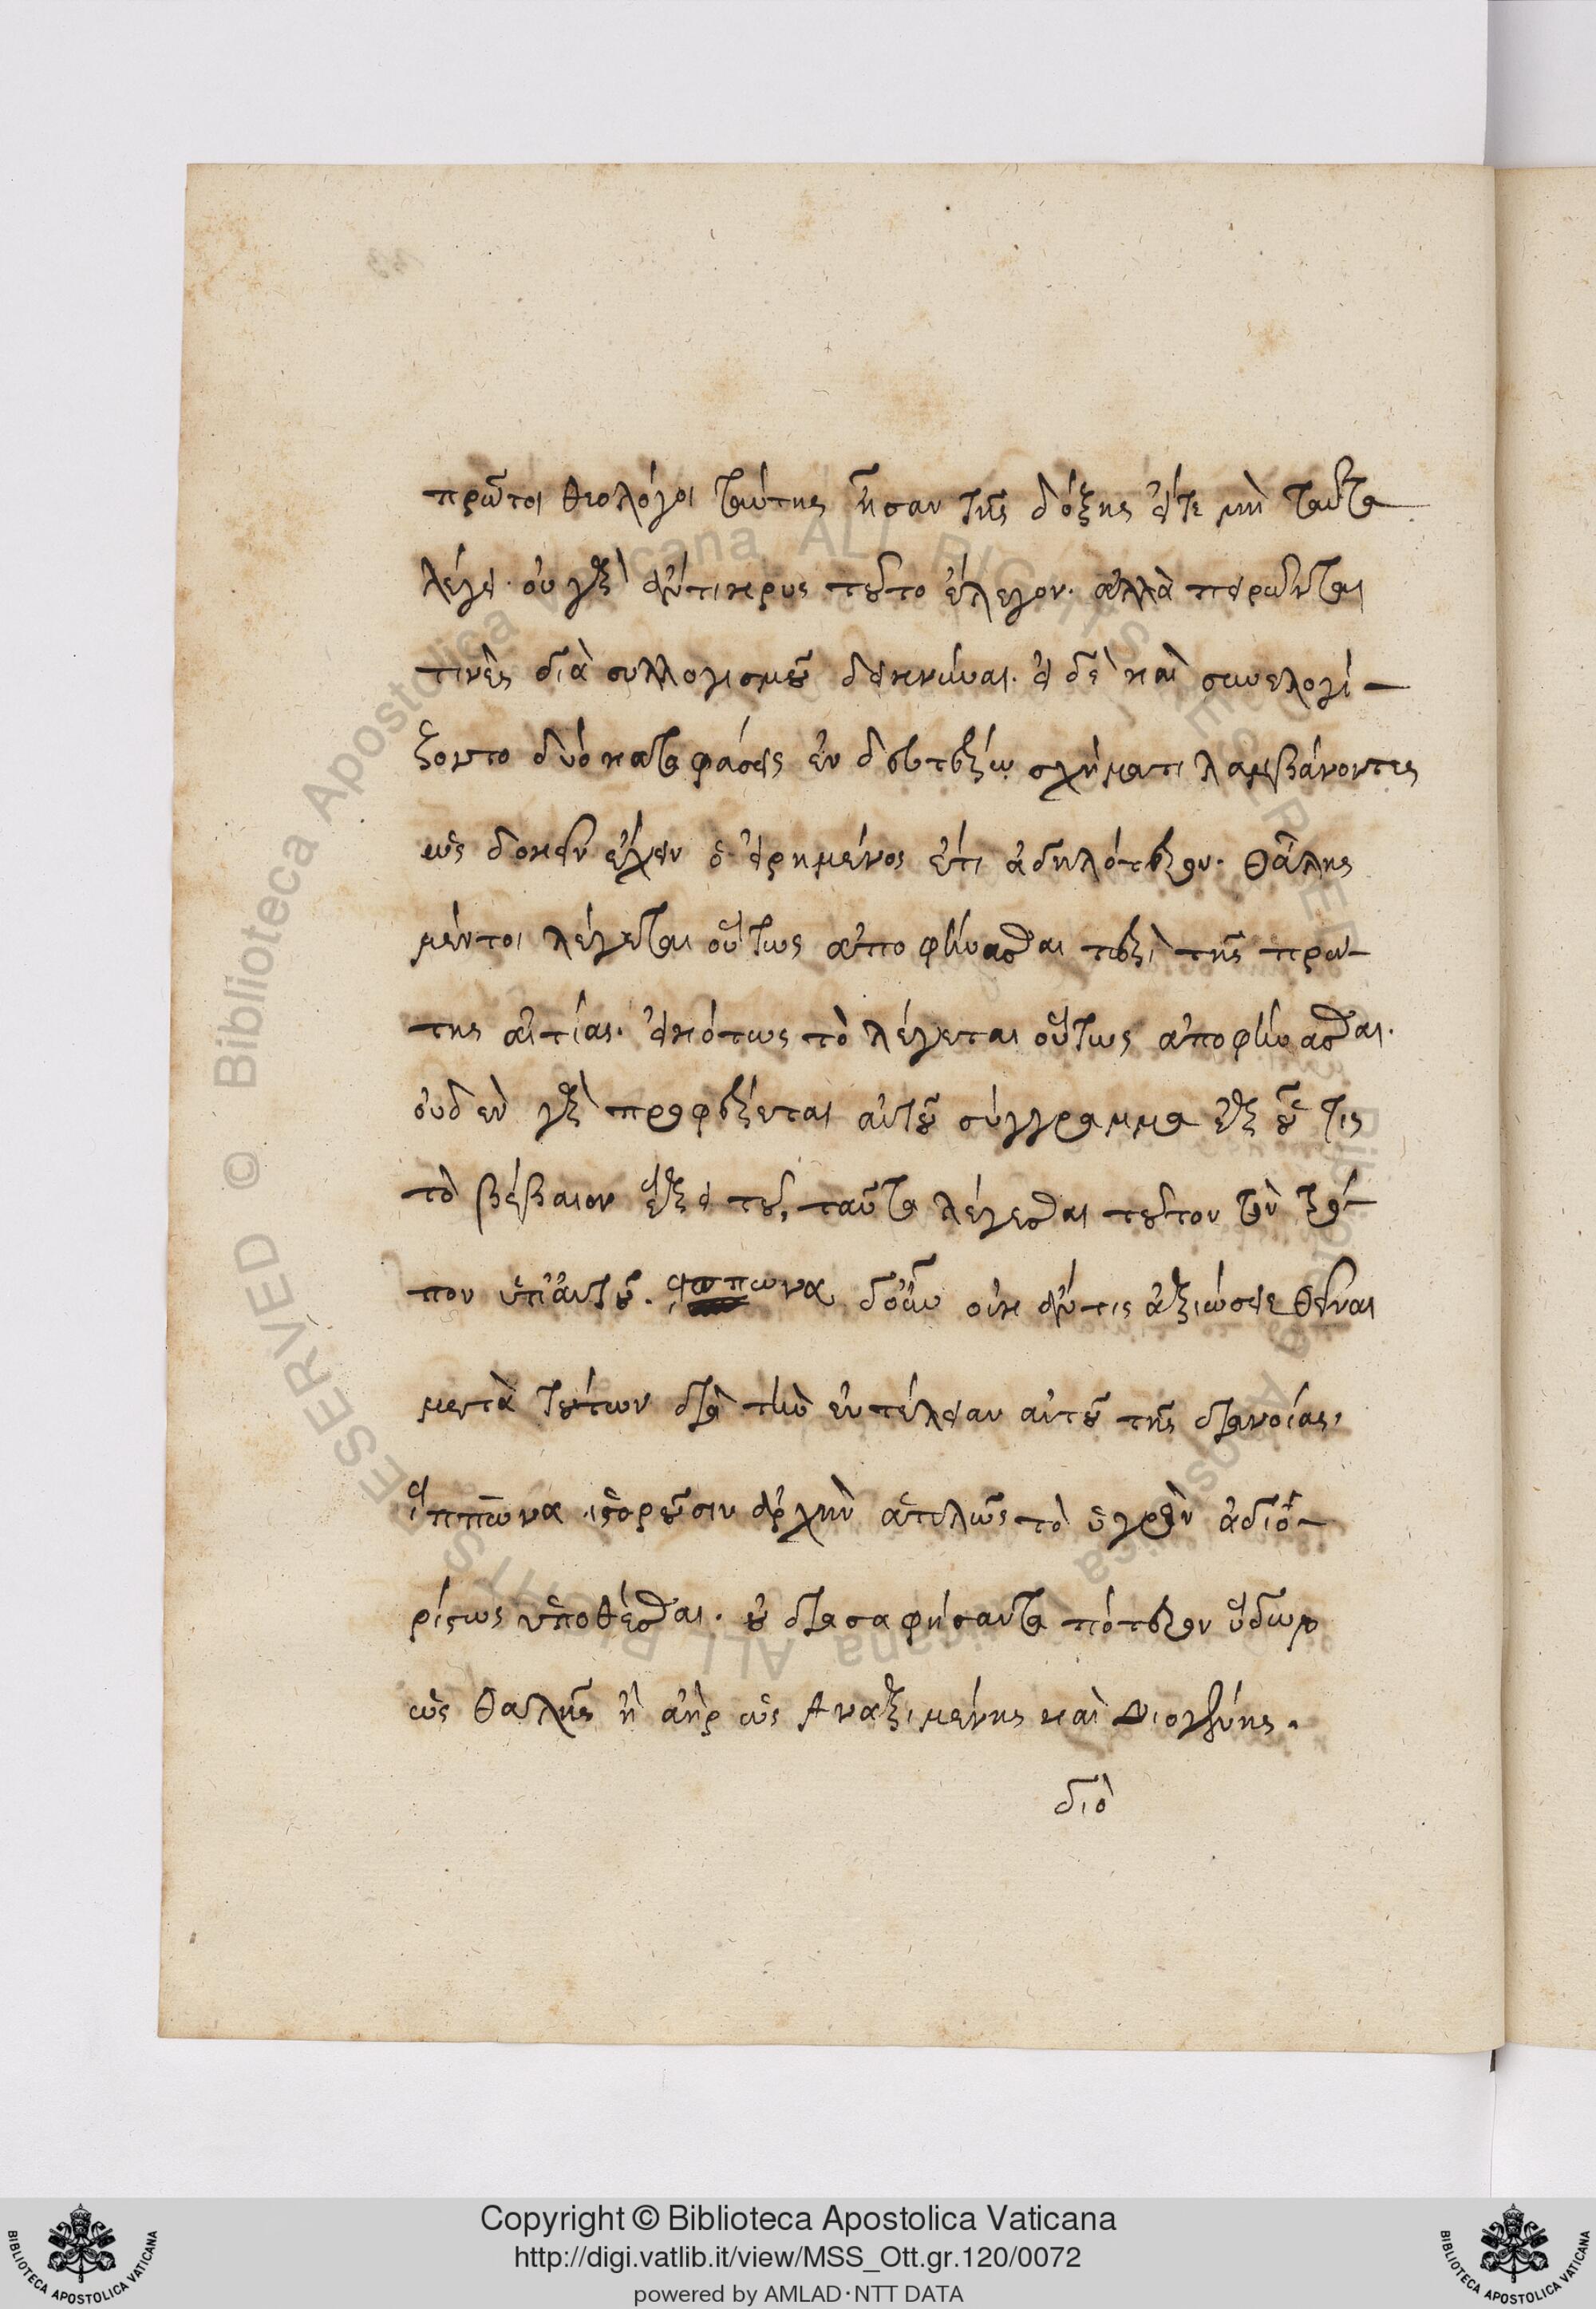 πρῶτοι θεολόγοι ταύτης ἦσαν τῆς δόξης εἴτε μὴ ταῦτα
λέγει. οὐ γὰρ ἄντικρυς τοῦτο ἔλεγον. ἀλλὰ πειρῶνται
τινὲς διὰ συλλογισμοῦ δεικνύναι. εἰ δὲ καὶ συνελογί-
ζοντο δύο καταφάσεις ἐν δευτέρῳ σχήματι λαμβάνοντες
ὡς δοκεῖν ἔχειν ὁ εἰρημένος ἔτι ἀδηλότερον. Θάλης
μέντοι λέγεται οὕτως ἀποφήνασθαι περὶ τῆς πρώ-
της αἰτίας. εἰκότως τὸ λέγεται οὕτως ἀποφήνασθαι.
οὐδὲν γὰρ προφέρεται αὐτοῦ σύγγραμμα ἐξ οὗ τις
τὸ βέβαιον ἕξει τοῦ, ταῦτα λέγεσθαι τοῦτον τὸν τρό-
πον ὑπ' αὐτοῦ. ἵππωνα δ' οὖν οὐκ ἄν τις ἀξιώσειε θεῖναι
μετὰ τούτων διὰ τὴν εὐτέλειαν αὐτοῦ τῆς διανοίας,
ἵππωνα ἱστοροῦσιν ἀρχὴν ἁπλῶς τὸ ὑγρὸν ἀδιο-
ρίστως ὑποθέσθαι. οὐ διασαφήσαντα πότερον ὕδωρ
ὡς Θαλῆς ἢ ἀὴρ ὡς Ἀναξιμένης καὶ Διογένης.
διὸ
Copyright © Biblioteca Apostolica Vaticana
http://digi.vatlib.it/view/MSS_Ott.gr.120/0072
powered by AMLAD·NTT DATA